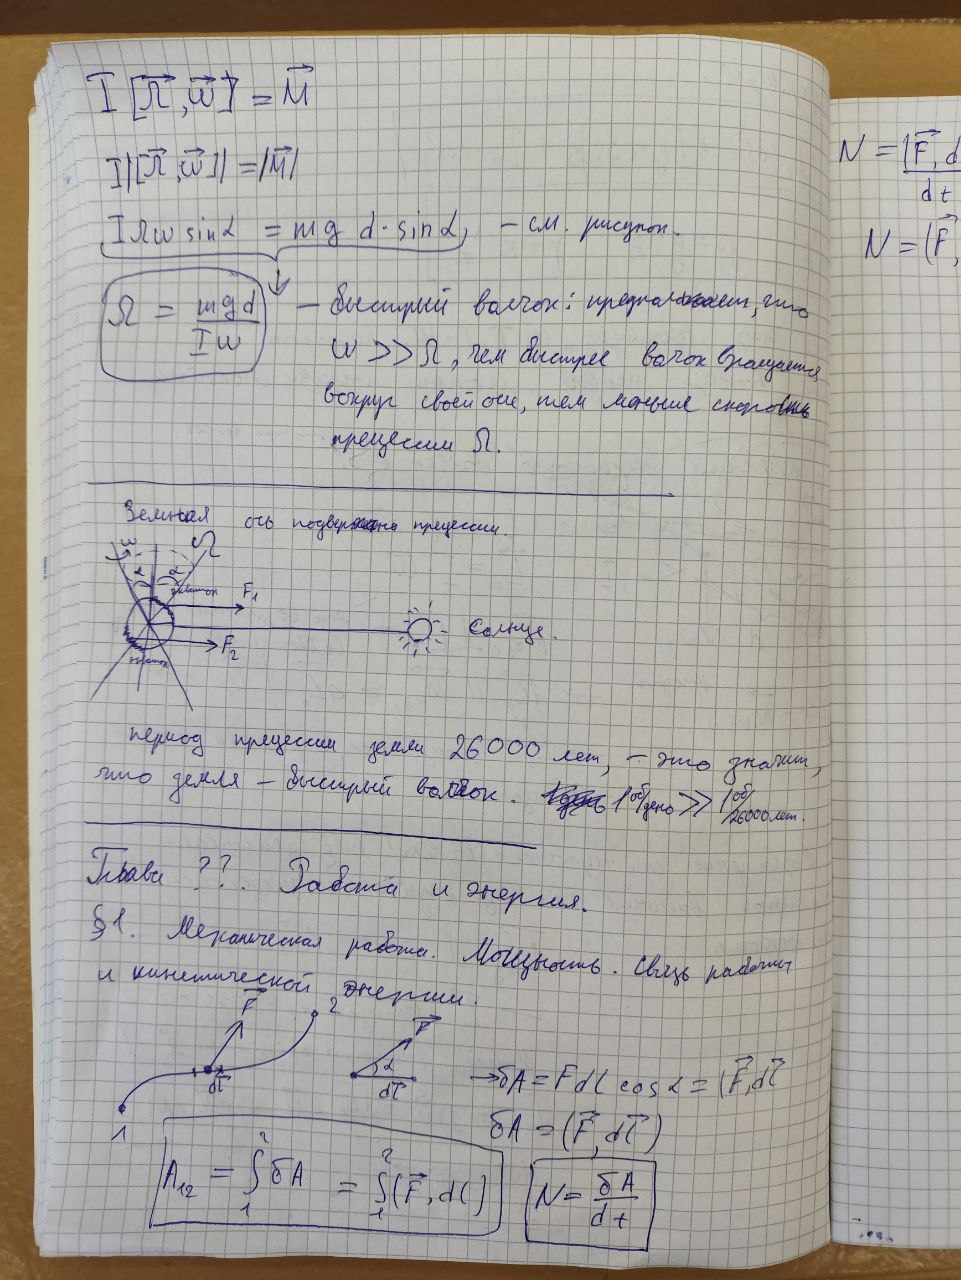 I [Ω⃗, ω⃗] = M⃗
I |[Ω⃗, ω⃗]| = |M⃗|
I Ω ω sinα = mg d · sinα, – см. рисунок.
Ω = mgd / Iω – быстрый волчок: предполагает, что
ω >> Ω, чем быстрее волчок вращается
вокруг своей оси, тем меньше скорость
прецессии Ω.
Земная ось подвержена прецессии.
ω Ω
α α
экваток F₁
Солнце.
F₂
экваток
период прецессии земли 26000 лет, – это значит,
что земля – быстрый волчок. 1 об/день >> 1 об/26000 лет.
Глава ??. Работа и энергия.
§1. Механическая работа. Мощность. Связь работы
и кинетической энергии.
F⃗ 2 F⃗
dl⃗ α dl⃗ → δA = F dl cos α = (F⃗, dl⃗
1 δA = (F⃗, dl⃗)
A₁₂ = ∫₁² δA = ∫₁² (F⃗, dl) N = δA / dt
N = (F⃗, d
dt
N = (F⃗,